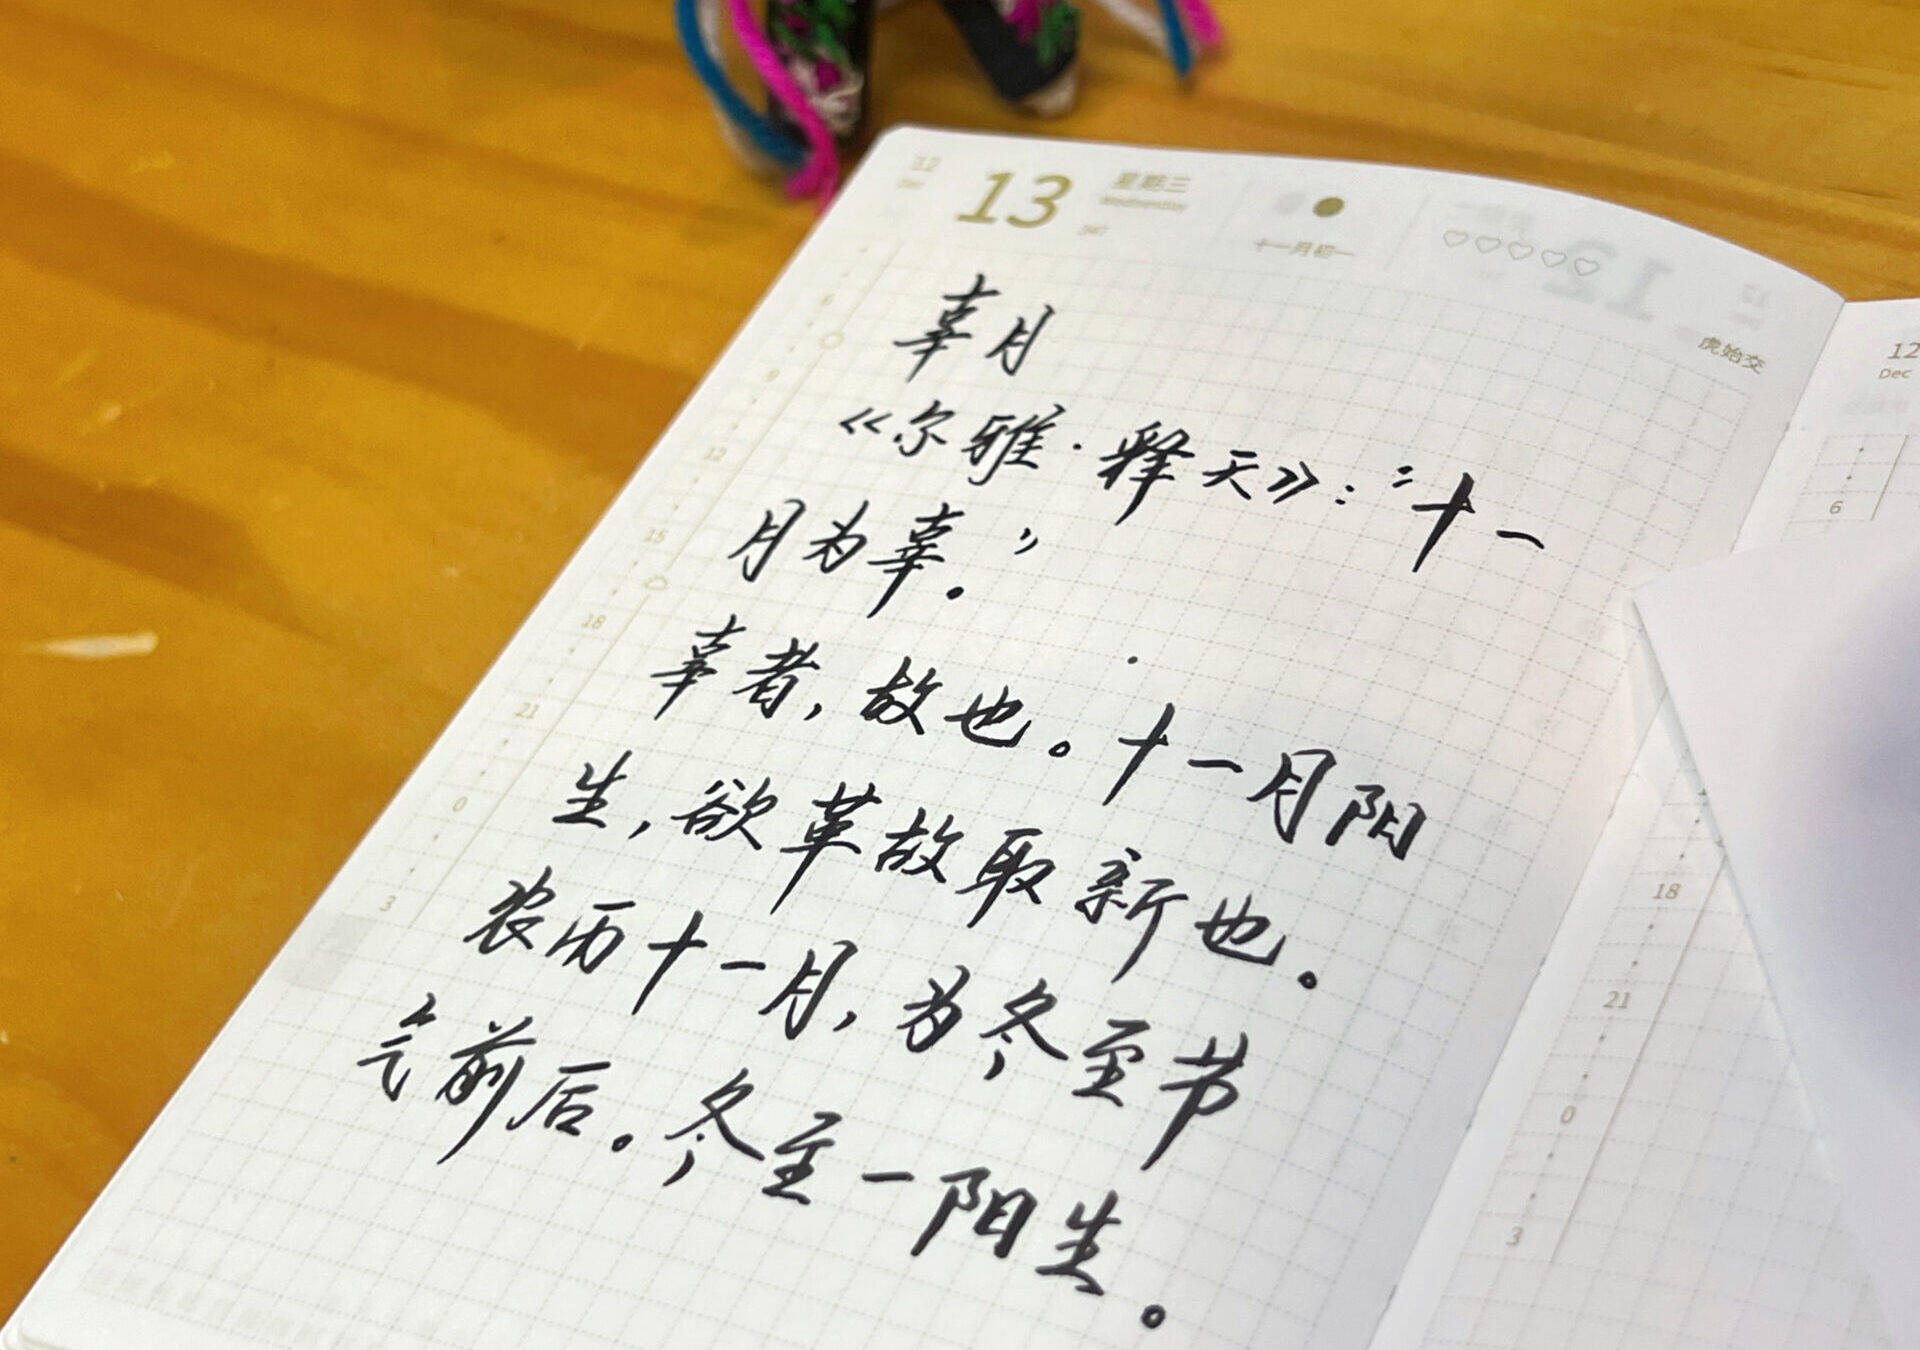 12
Dec
13
星期三
Wednesday
347
十一月初一
虎始交
辜月
《尔雅·释天》：“十一
月为辜。”
辜者，故也。十一月阳
生，欲革故取新也。
农历十一月，为冬至节
气前后。冬至一阳生。
6
9
12
15
18
21
0
3
12
Dec
6
18
21
0
3